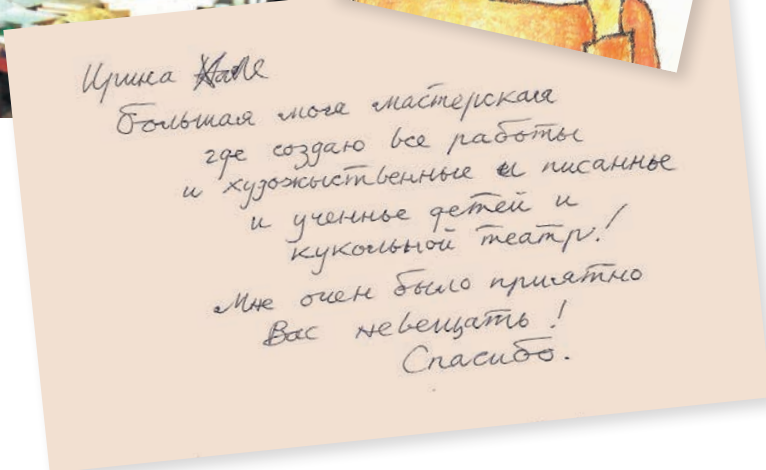 Ирина
Большая моя мастерская
где создаю все работы
и художыственные и писаннье
и ученье детей и
кукольной театр!
Мне очен было приятно
Вас невещать!
Спасибо.